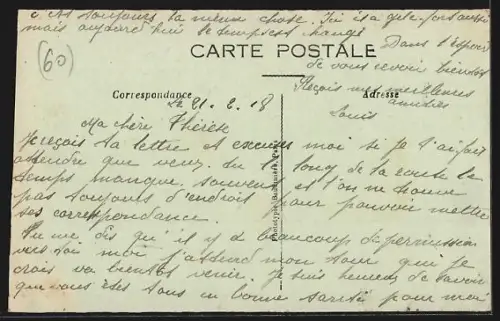 c'est toujours la même chose. Ici il a gelé fort aussi
mais aujourd'hui le temps est changé
CARTE POSTALE
Dans l'espoir
de vous revoir bientôt
Reçois mes meilleures
amitiés
Louis
(60)
Correspondance
Adresse
Le 21-2-18
Ma chère
Je reçois ta lettre et excuse moi si je t'ai fait
attendre que veux du long de la route le
temps manque souvent et l'on ne trouve
pas toujours d'endroit pour pouvoir mettre
ses correspondance.
Tu me dis qu'il y a beaucoup de permission
vers toi moi j'attend mon tour qui je
crois va bientôt venir. Je suis heureux de savoir
que vous êtes tous en bonne santé pour moi
Phototypie